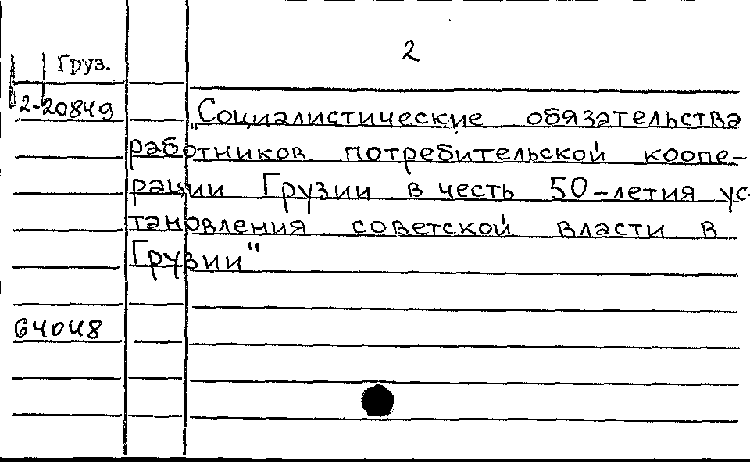 2
Груз.
2-20849
„Социалистические обязательства
работников потребительской коопе-
рации Грузии в честь 50-летия ус-
тановления советской власти в
Грузии"
64048